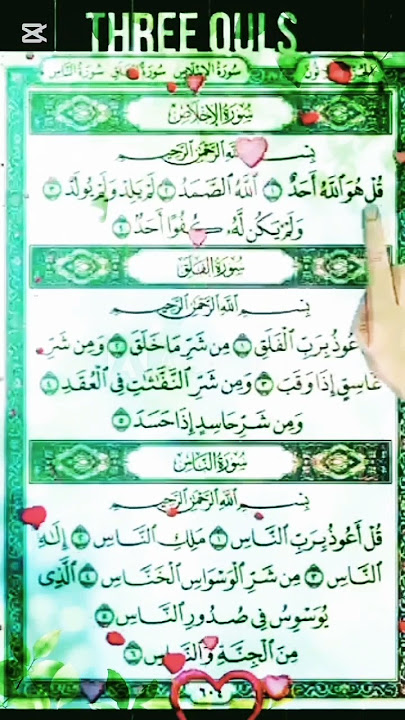 THREE QULS
سُورَةُ الإِخْلَاصِ سُورَةُ الفَلَقِ سُورَةُ النَّاسِ
سُورَةُ الإِخْلَاصِ
بِسْمِ اللَّهِ الرَّحْمَٰنِ الرَّحِيمِ
قُلْ هُوَ اللَّهُ أَحَدٌ ١ اللَّهُ الصَّمَدُ ٢ لَمْ يَلِدْ وَلَمْ يُولَدْ ٣
وَلَمْ يَكُن لَّهُ كُفُوًا أَحَدٌ ٤
سُورَةُ الفَلَقِ
بِسْمِ اللَّهِ الرَّحْمَٰنِ الرَّحِيمِ
أَعُوذُ بِرَبِّ الْفَلَقِ ١ مِن شَرِّ مَا خَلَقَ ٢ وَمِن شَرِّ
غَاسِقٍ إِذَا وَقَبَ ٣ وَمِن شَرِّ النَّفَّاثَاتِ فِي الْعُقَدِ ٤
وَمِن شَرِّ حَاسِدٍ إِذَا حَسَدَ ٥
سُورَةُ النَّاسِ
بِسْمِ اللَّهِ الرَّحْمَٰنِ الرَّحِيمِ
قُلْ أَعُوذُ بِرَبِّ النَّاسِ ١ مَلِكِ النَّاسِ ٢ إِلَٰهِ
النَّاسِ ٣ مِن شَرِّ الْوَسْوَاسِ الْخَنَّاسِ ٤ الَّذِي
يُوَسْوِسُ فِي صُدُورِ النَّاسِ ٥
مِنَ الْجِنَّةِ وَالنَّاسِ ٦
٦٠٤